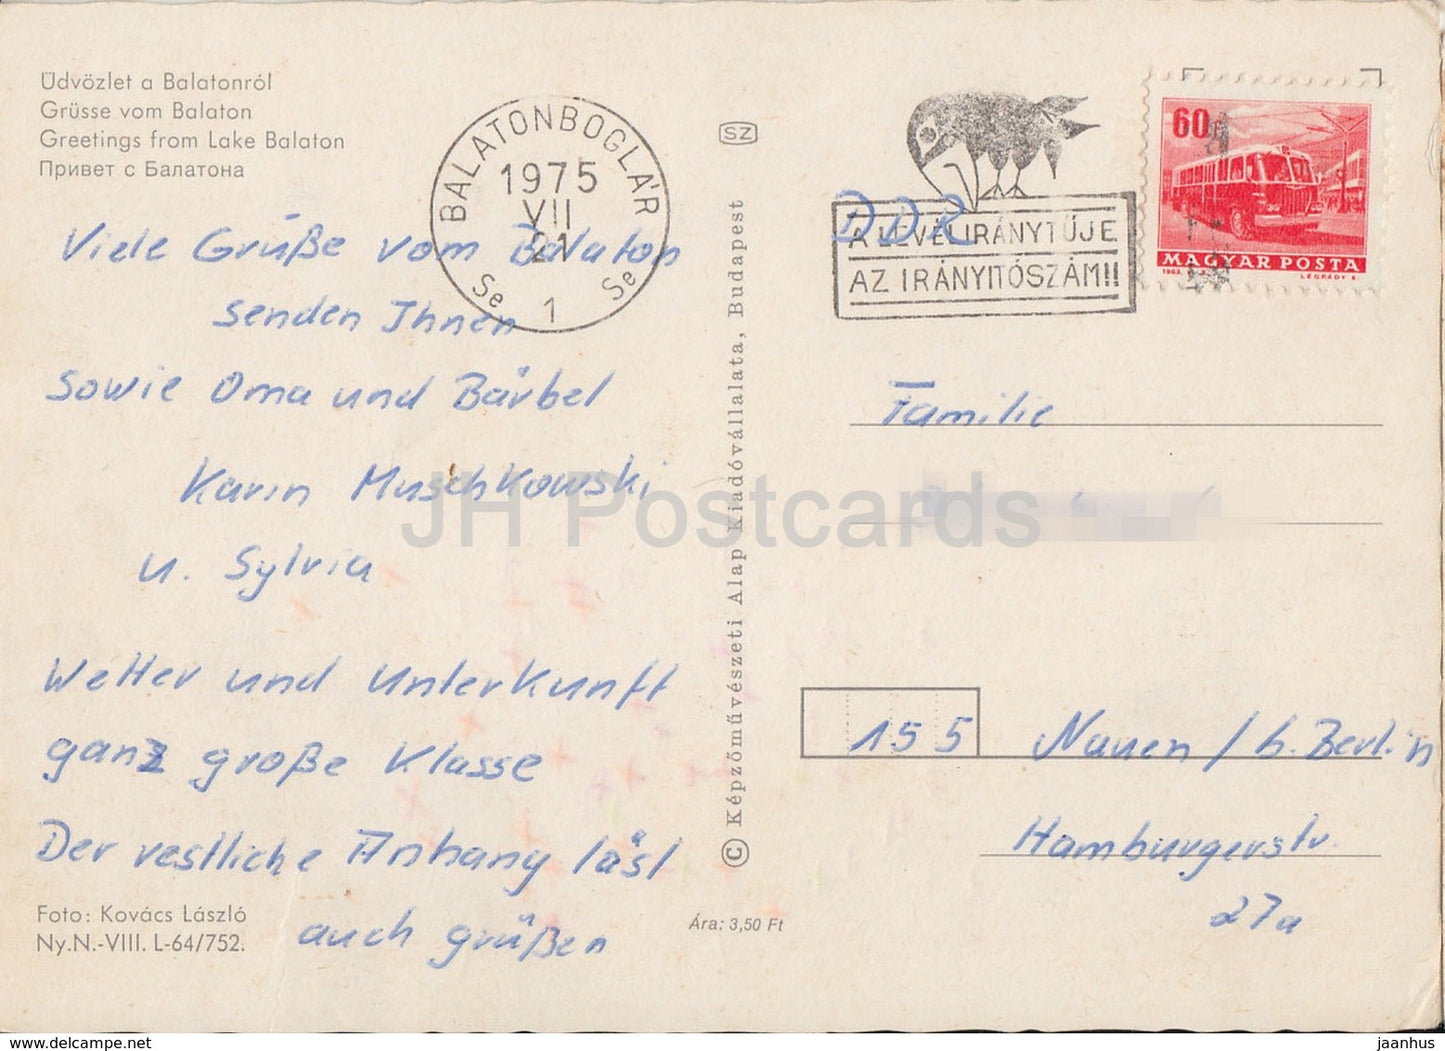 Üdvözlet a Balatonról
Grüsse vom Balaton
Greetings from Lake Balaton
Привет с Балатона
BALATONBOGLÁR
1975
VII
21
Se 1 Se
SZ
A LEVÉL IRÁNYTŰJE
AZ IRÁNYITÓSZÁM!!
60f
MAGYAR POSTA
1963. LÉGRÁDY S.
DDR
Viele Grüße vom Balaton
senden Ihnen
sowie Oma und Bärbel
Karin Muschkowski
u. Sylvia
Wetter und Unterkunft
ganz große Klasse
Der restliche Anhang läst
auch grüßen
Foto: Kovács László
Ny.N.-VIII. L-64/752.
Ára: 3,50 Ft
© Képzőművészeti Alap Kiadóvállalata, Budapest
Familie
155 Nauen / b. Berlin
Hamburgerstr.
27a
JH Postcards
jaanhus @ delcampe.net